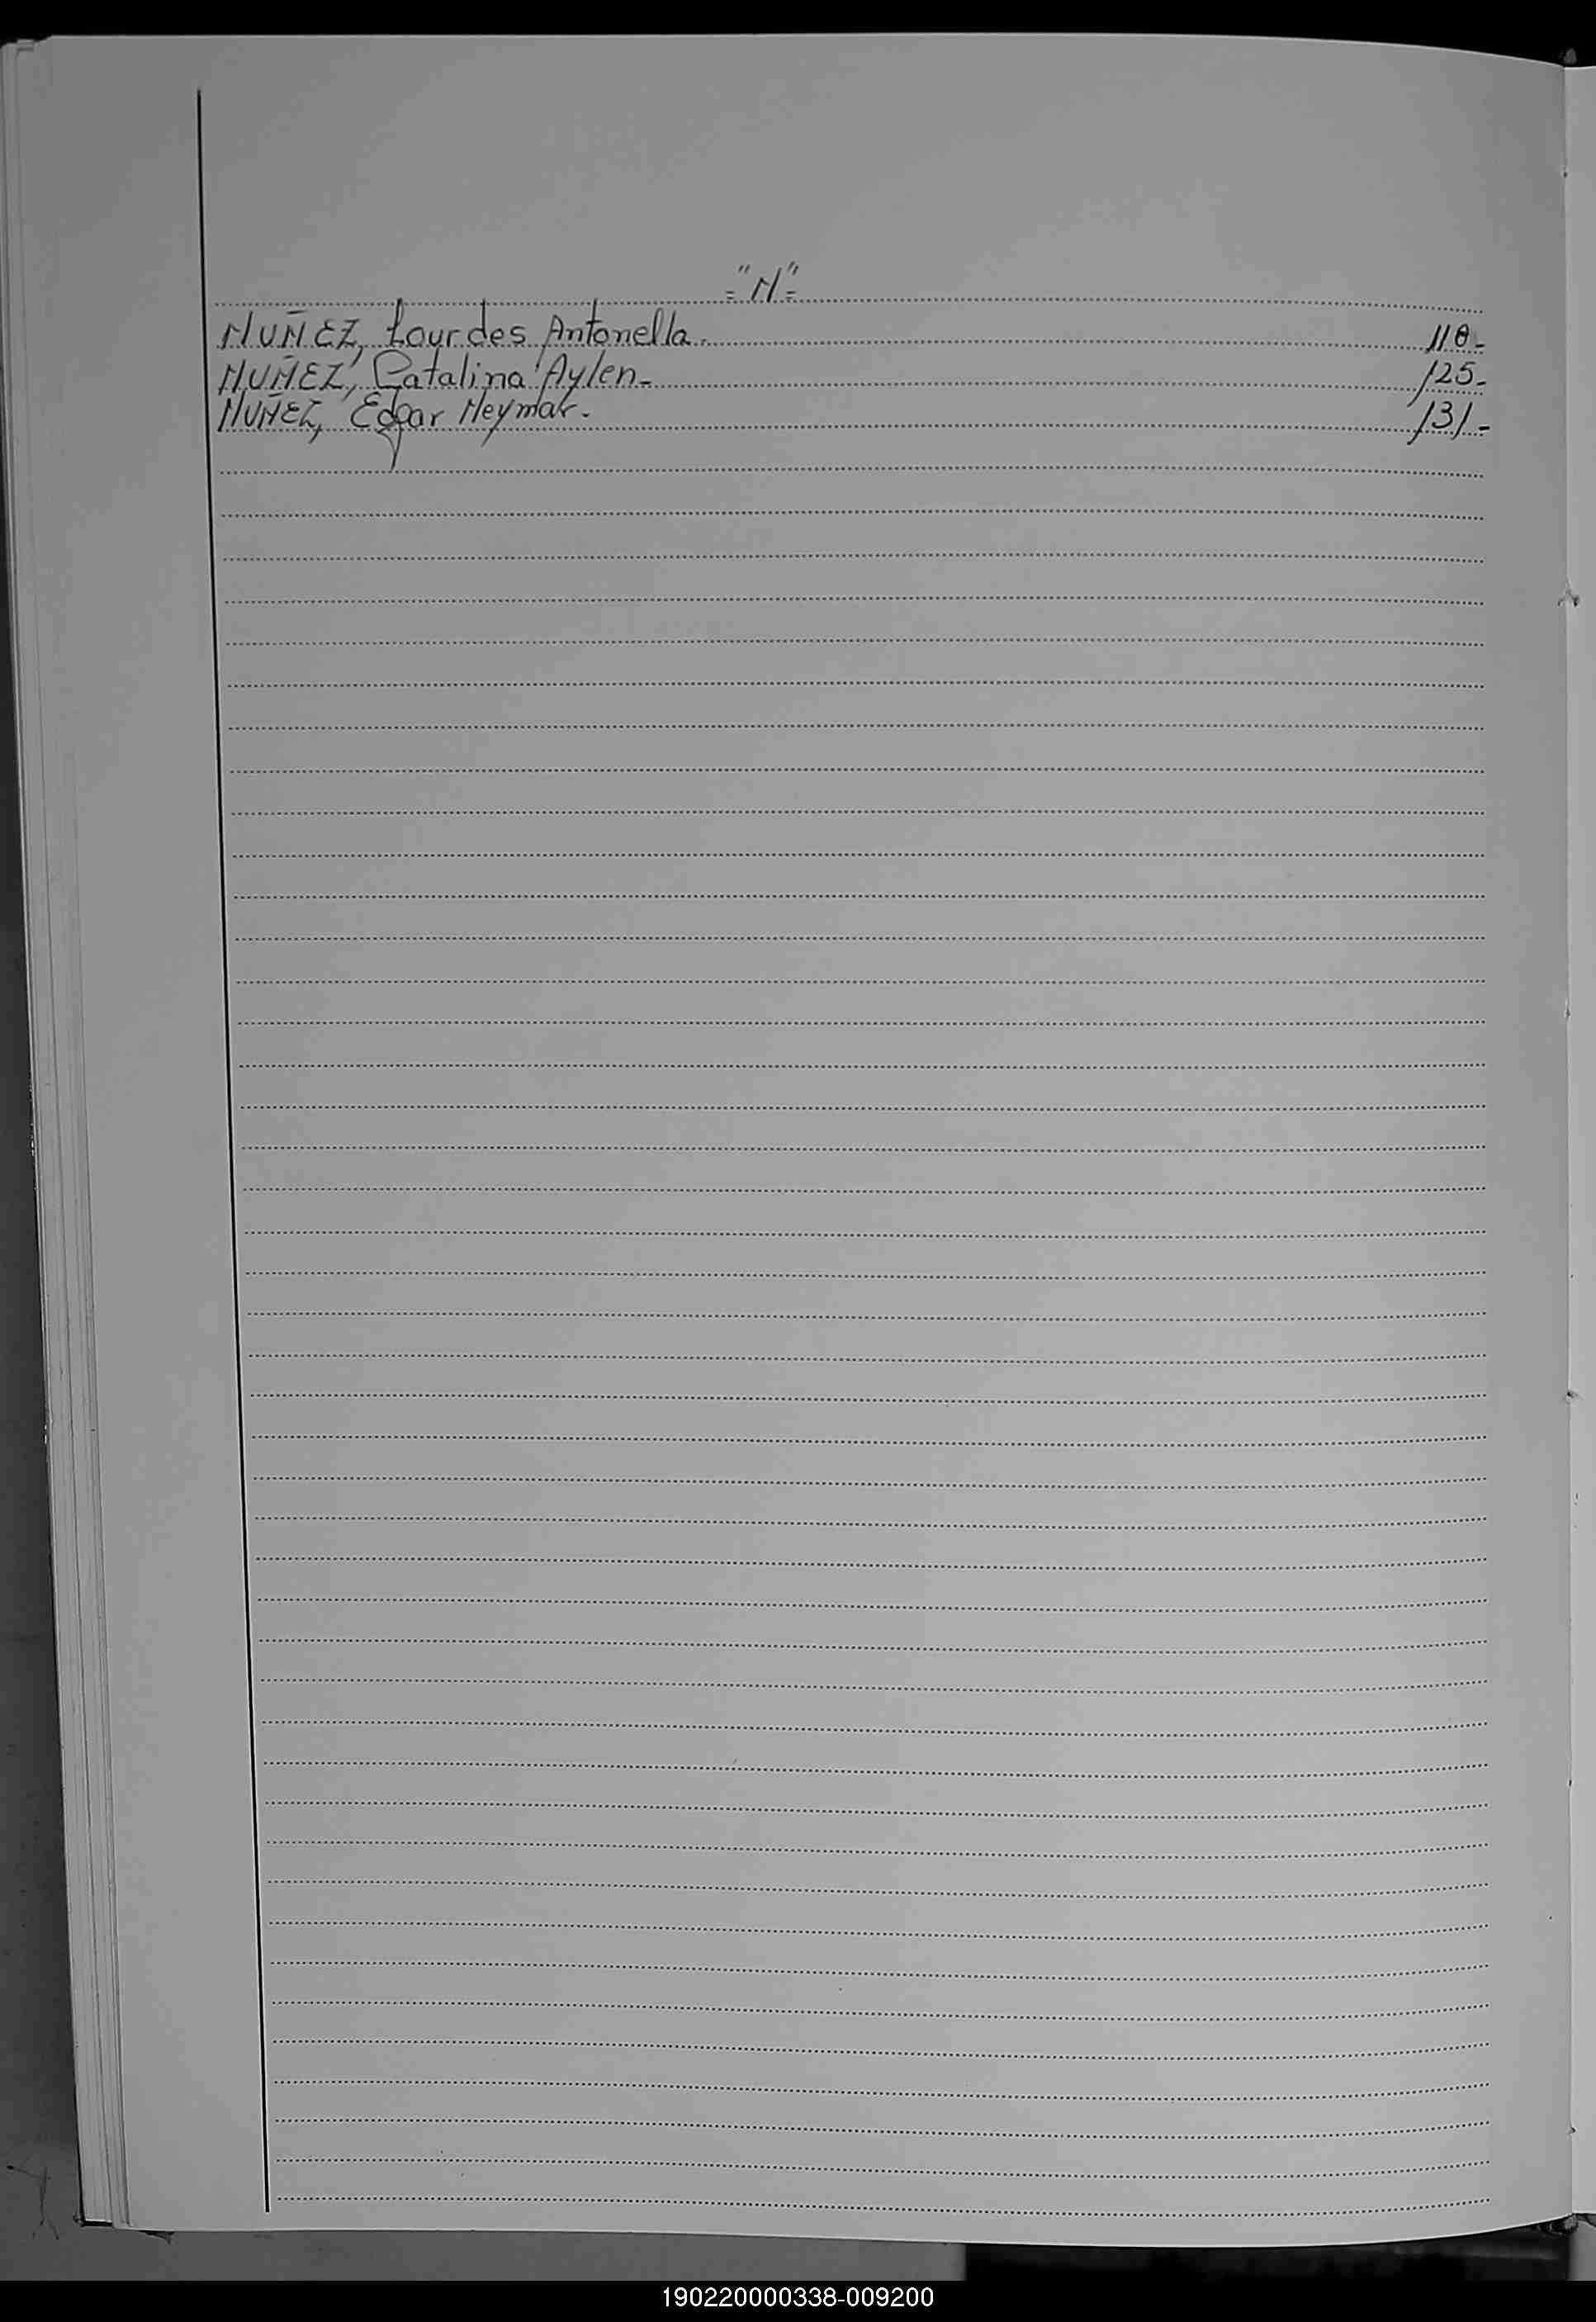 ="N"=
NUÑEZ, Lourdes Antonella. 118-
NUÑEZ, Catalina Aylen- 125-
NUÑEZ, Edgar Neymar. 131-
190220000338-009200